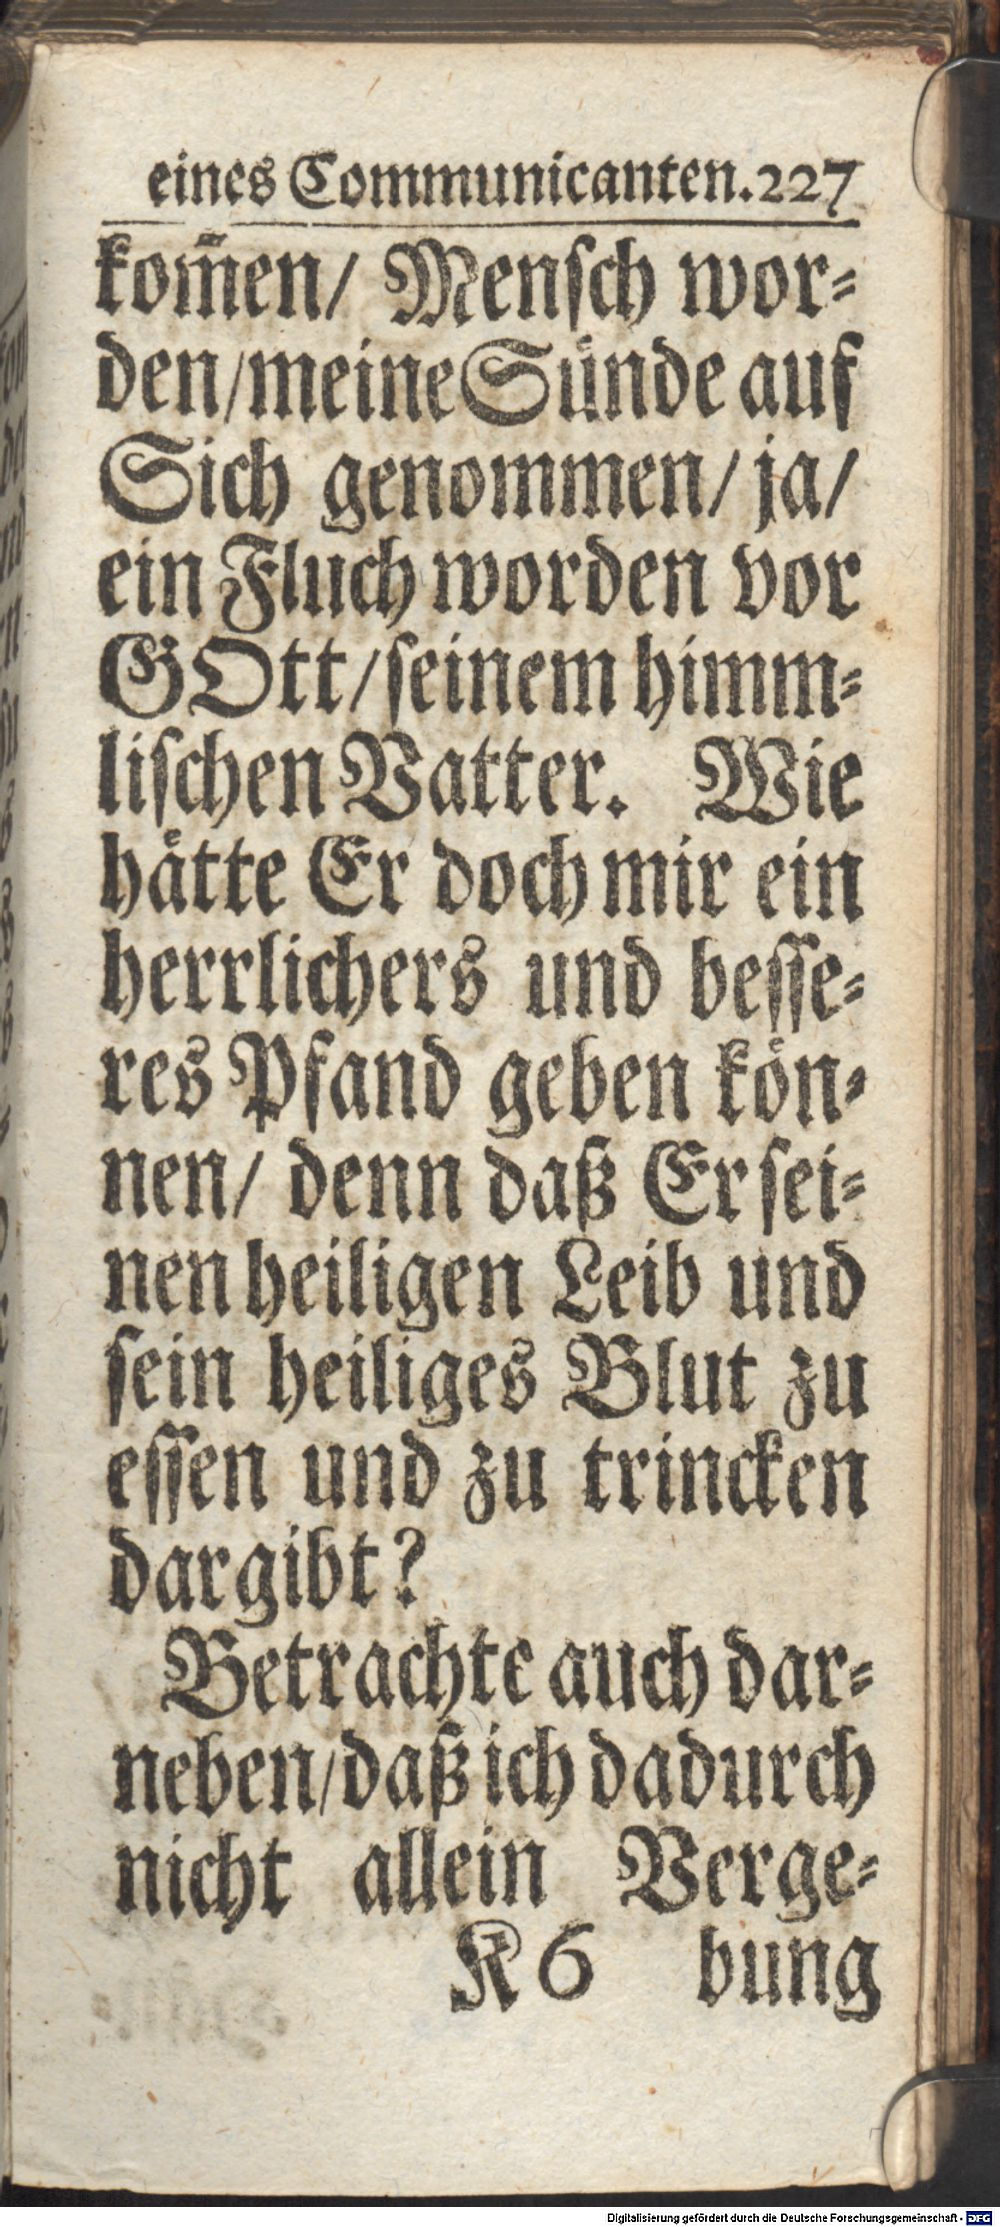 eines Communicanten. 227
kom̃en/ Mensch wor-
den/ meine Sünde auf
Sich genommen/ ja/
ein Fluch worden vor
GOtt/ seinem himm-
lischen Vatter. Wie
hätte Er doch mir ein
herrlichers und besse-
res Pfand geben kön-
nen/ denn daß Er sei-
nen heiligen Leib und
sein heiliges Blut zu
essen und zu trincken
dargibt?
Betrachte auch dar-
neben/ daß ich dadurch
nicht allein Verge-
K 6 bung
Digitalisierung gefördert durch die Deutsche Forschungsgemeinschaft - DFG